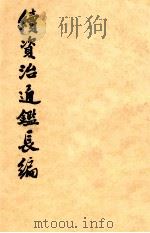 續資治通鑑長編
mtoou.info